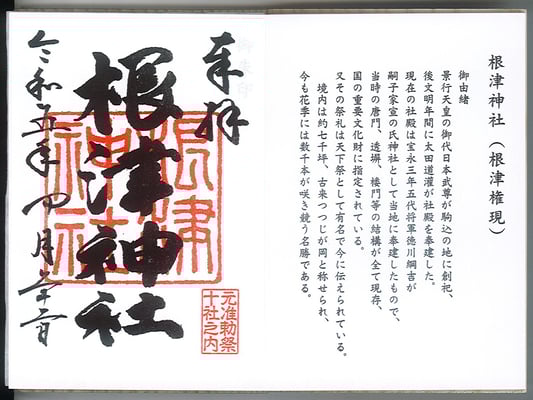 根津神社（根津権現）
御由緒
景行天皇の御代日本武尊が駒込の地に創祀、
後文明年間に太田道灌が社殿を奉建した。
現在の社殿は宝永三年五代将軍徳川綱吉が
嗣子家宣の氏神社として当地に奉建したもので、
当時の唐門、透塀、楼門等の結構が全て現存、
国の重要文化財に指定されている。
又その祭礼は天下祭として有名で今に伝えられている。
境内は約七千坪、古来つつじが岡と称せられ、
今も花季には数千本が咲き競う名勝である。
奉拝
根津神社
根津
神社
元准勅祭
十社之内
令和五年四月